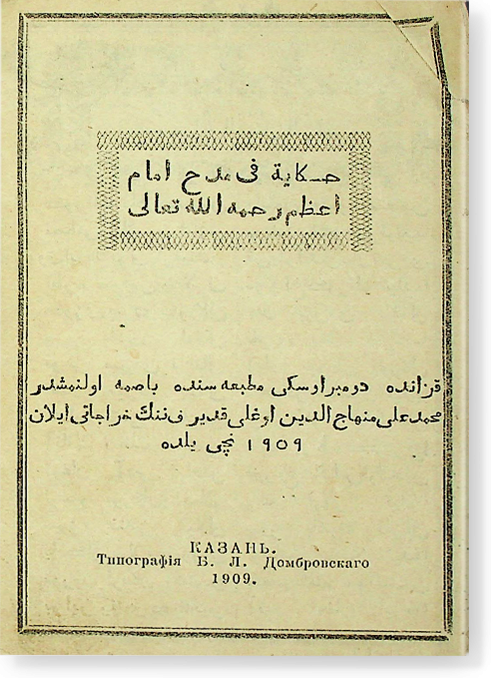 حكاية فی مدح امام
اعظم رحمه الله تعالى
قزانده دومبراوسكی مطبعه سنده باصمه اولنمشدر
محمد علی منهاج الدین اوغلی قدیروننك خراجاتی ایلان
١٩٠٩ نچی یلده
КАЗАНЬ.
Типографія Б. Л. Домбровскаго
1909.